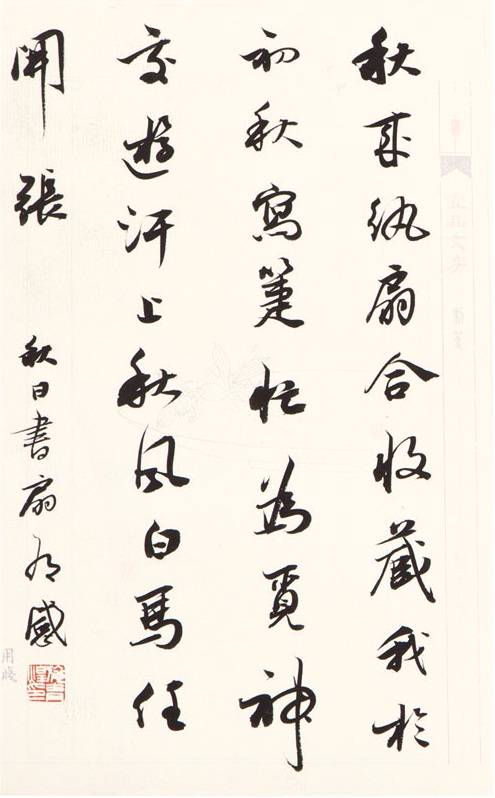 秋来紈扇合收藏我於
初秋寫箑忙為覓神
交遊汗上秋風白馬任
開張
秋日書扇有感
用箋